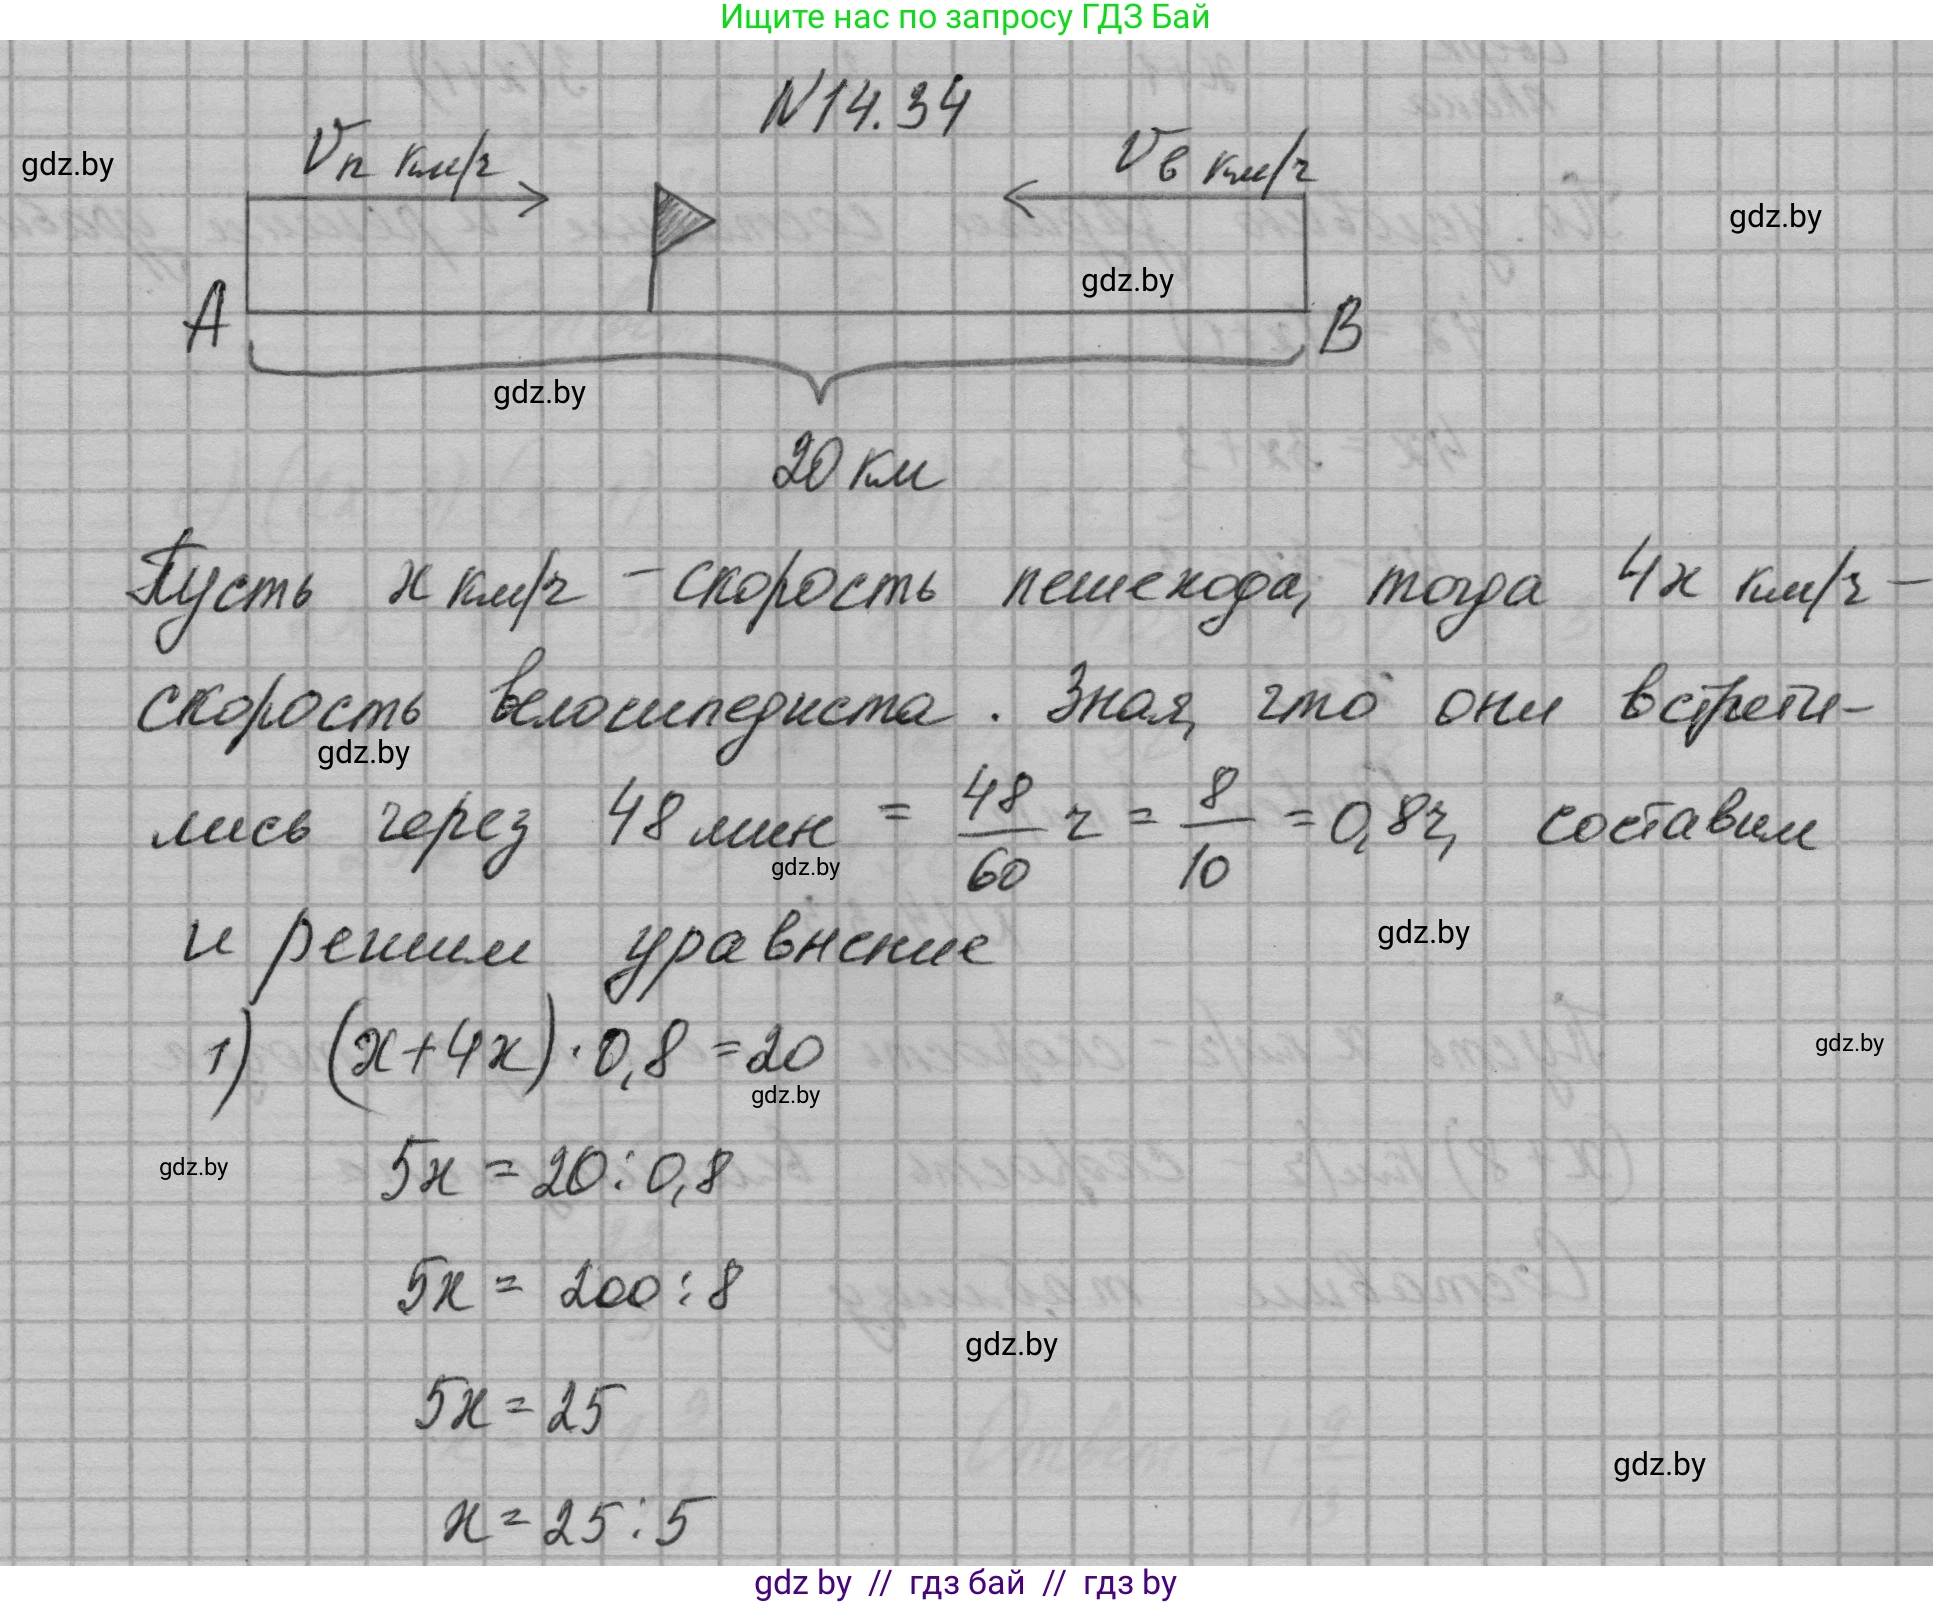 Ищите нас по запросу ГДЗ Бай
N14.34
Vп км/ч
Vв км/ч
gdz.by
gdz.by
gdz.by
A
B
gdz.by
20 км
Пусть x км/ч – скорость пешехода, тогда 4x км/ч –
скорость велосипедиста. Зная, что они встрети-
gdz.by
лись через 48 мин = 48/60 ч = 8/10 = 0,8ч, составим
gdz.by
и решим уравнение
gdz.by
1) (x+4x)·0,8=20
gdz.by
gdz.by
5x = 20:0,8
gdz.by
5x = 200:8
gdz.by
5x = 25
gdz.by
x = 25:5
gdz by // гдз бай // гдз by